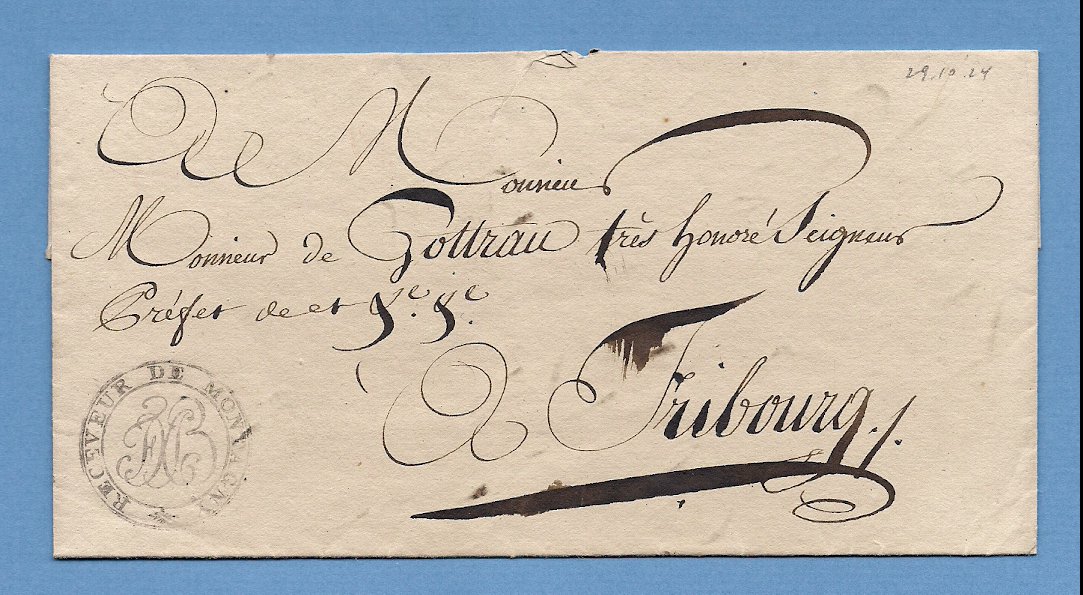 29.10.24
A Monsieur
Monsieur de Gottrau très honoré Seigneur
Préfet de et
à Fribourg
RECEVEUR DE MONTAGNY